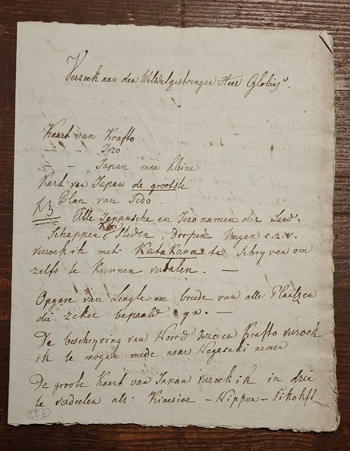 Verzoek aan den Welwelgebooren Heer Globius.
Kaart van Krafto
— — Jezo
— — Japan eene kleine
Kart van Japan de grootste
Plan van Jedo
Alle Japansche en Jezo namen der Land
schappen, Steden, Dorpen Bergen e.z.v.
verzoek ik met Katakana te schryven om
zelfs te kunnen vertalen. —
Opgave van Lengte en breede van alle Plaatzen
die zeker bepaald zyn. —
De beschryving van Noord Jezo en Krafto verzoek
ik te mogen mede naar Nagasaki nemen
De groote Kaart van Japan verzoek ik in drie
te verdeelen als: Kioesioe — Nippon — Sikokf.